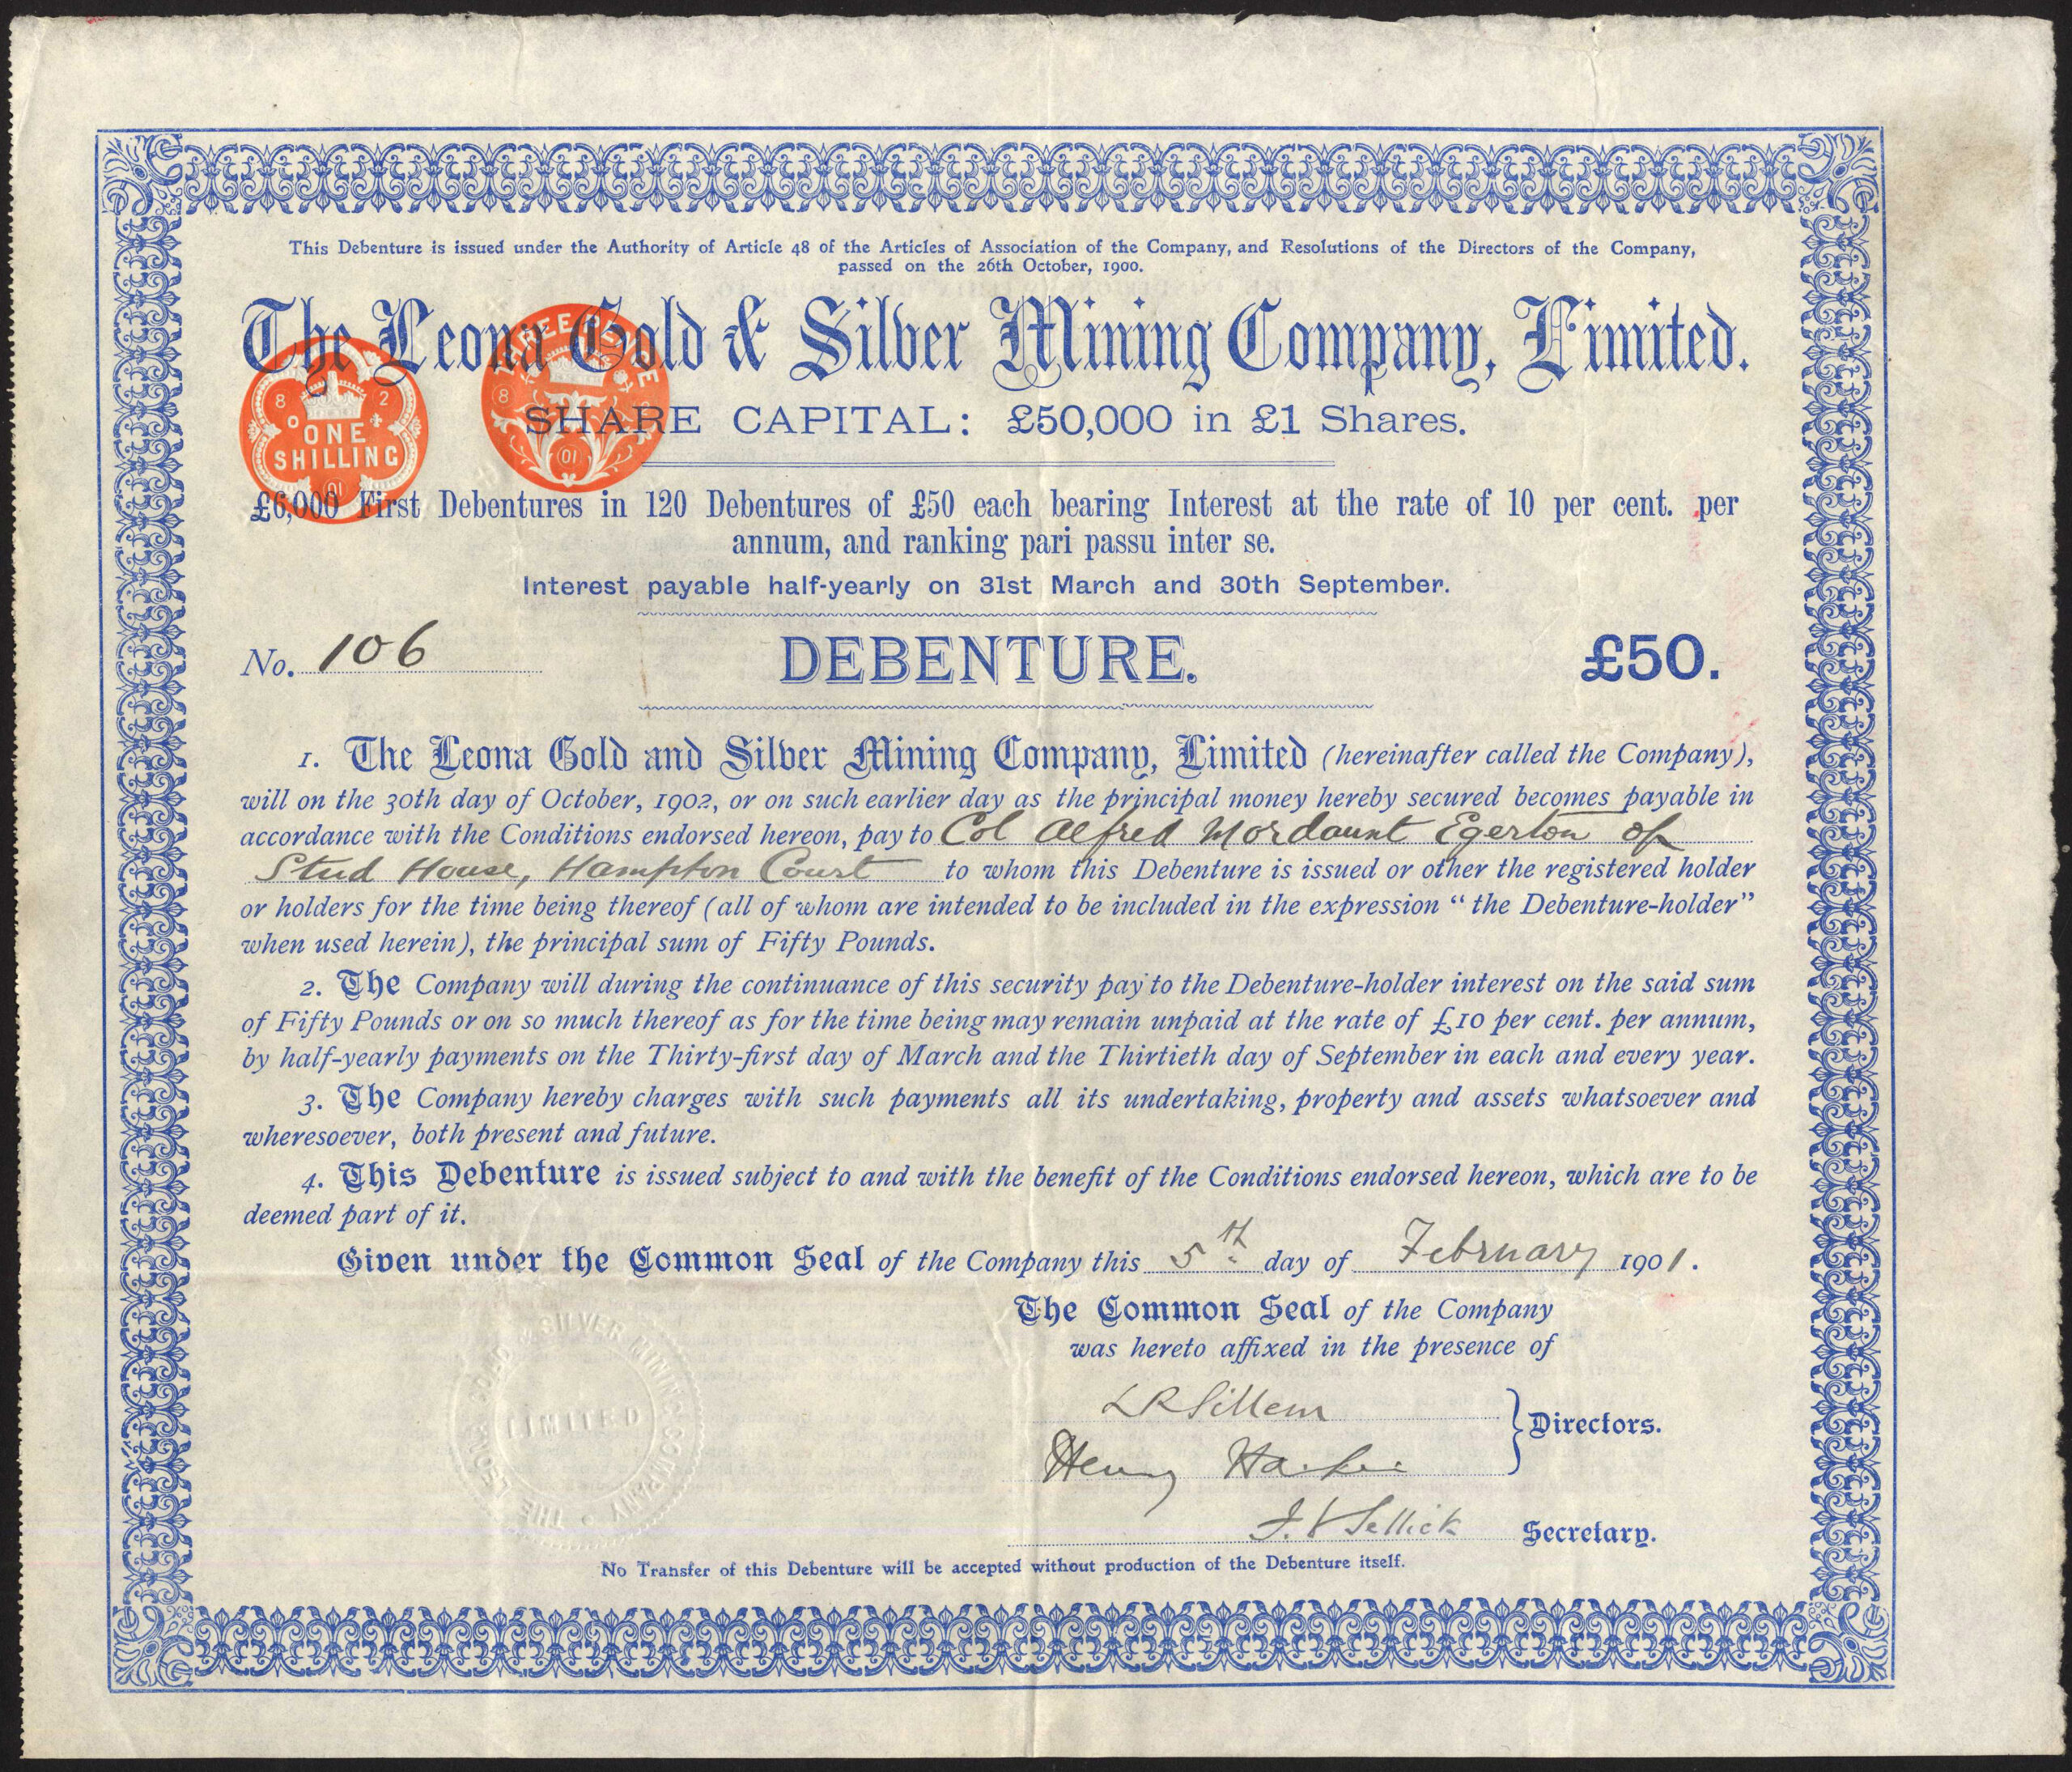 This Debenture is issued under the Authority of Article 48 of the Articles of Association of the Company, and Resolutions of the Directors of the Company,
passed on the 26th October, 1900.
The Leona Gold & Silver Mining Company, Limited.
THREE PENCE
8
01
8 2
ONE
SHILLING
01
SHARE CAPITAL: £50,000 in £1 Shares.
£6,000 First Debentures in 120 Debentures of £50 each bearing Interest at the rate of 10 per cent. per
annum, and ranking pari passu inter se.
Interest payable half-yearly on 31st March and 30th September.
No. 106 DEBENTURE. £50.
1. The Leona Gold and Silver Mining Company, Limited (hereinafter called the Company),
will on the 30th day of October, 1902, or on such earlier day as the principal money hereby secured becomes payable in
accordance with the Conditions endorsed hereon, pay to Col Alfred Mordaunt Egerton of
Stud House, Hampton Court to whom this Debenture is issued or other the registered holder
or holders for the time being thereof (all of whom are intended to be included in the expression “the Debenture-holder”
when used herein), the principal sum of Fifty Pounds.
2. The Company will during the continuance of this security pay to the Debenture-holder interest on the said sum
of Fifty Pounds or on so much thereof as for the time being may remain unpaid at the rate of £10 per cent. per annum,
by half-yearly payments on the Thirty-first day of March and the Thirtieth day of September in each and every year.
3. The Company hereby charges with such payments all its undertaking, property and assets whatsoever and
wheresoever, both present and future.
4. This Debenture is issued subject to and with the benefit of the Conditions endorsed hereon, which are to be
deemed part of it.
Given under the Common Seal of the Company this 5th day of February 1901.
The Common Seal of the Company
was hereto affixed in the presence of
LRSillem
Henry
Directors.
Sellick Secretary.
THE LEONA GOLD & SILVER MINING COMPANY
LIMITED
No Transfer of this Debenture will be accepted without production of the Debenture itself.